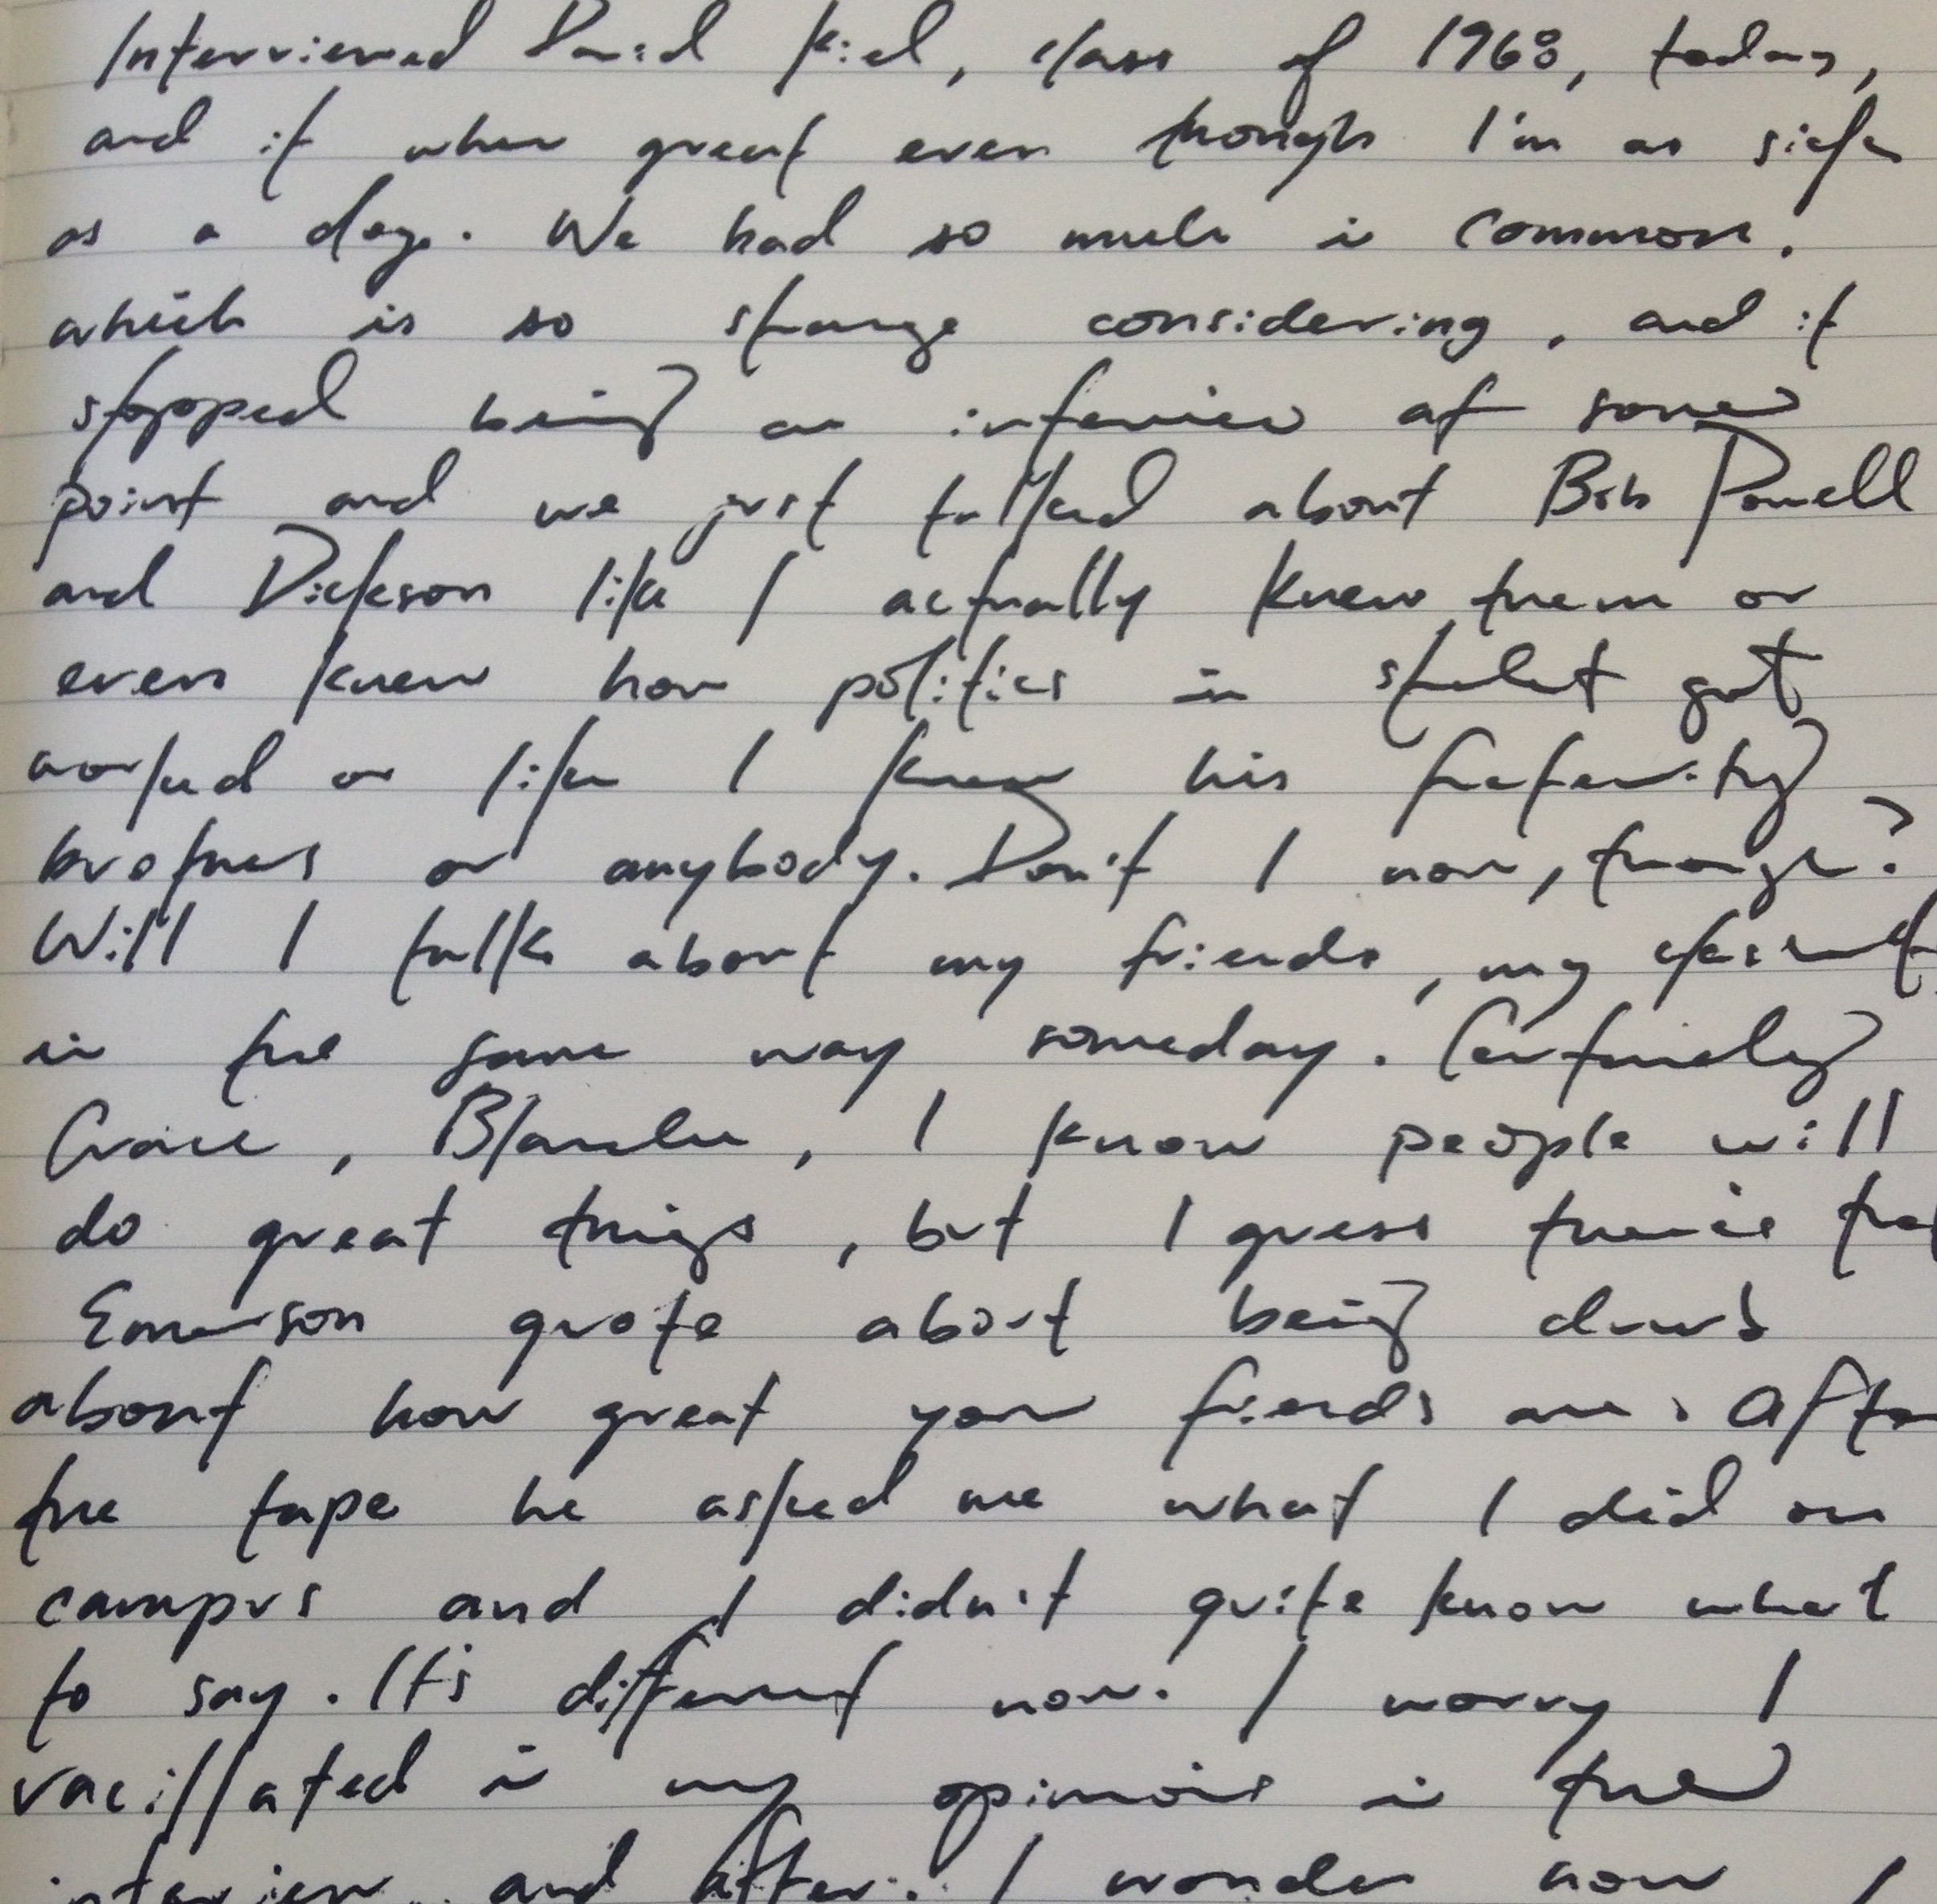 Interviewed David Kiel, class of 1968, today,
and it was great even though I'm as sick
as a dog. We had so much in common.
which is so strange considering, and it
stopped being an interview at some
point and we just talked about Bob Powell
and Dickson like I actually knew them or
even knew how politics in student gov't
worked or like I knew his fraternity
brothers or anybody. Don't I now, though?
Will I talk about my friends, my
in the same way someday. Certainly
Grace, Blanche, I know people will
do great things, but I guess there's that
Emerson quote about being dumb
about how great your friends are. After
the tape he asked me what I did on
campus and I didn't quite know what
to say. It's different now. I worry I
vacillated in my opinions in the
interview and after. I wonder now I